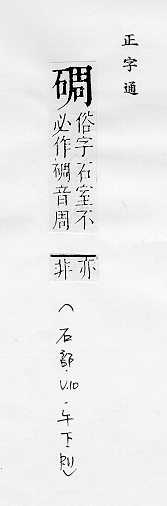 正字通
碉
俗字石室不
必作碉音周
亦
非
(石部.V.10.午下